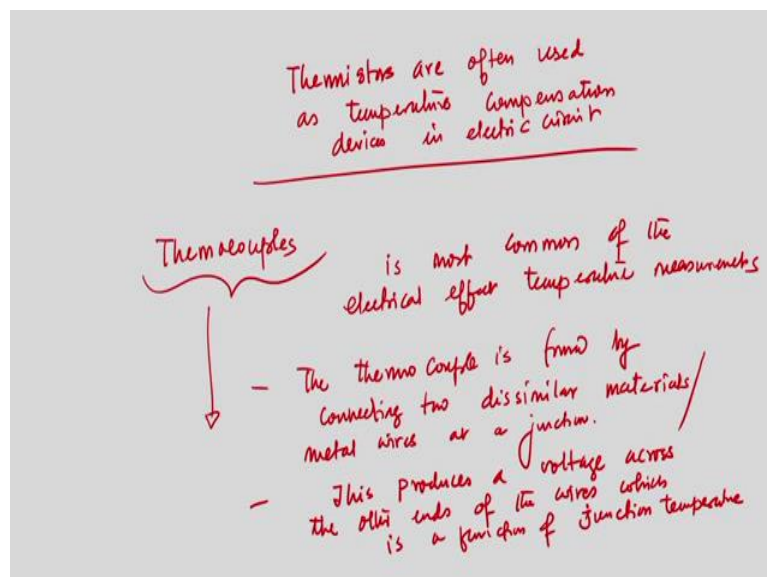 Thermistors are often used
as temperature compensation
devices in electric circuit
Thermocouples
is most common of the
electrical effect temperature measurements
- The thermo couple is formed by
connecting two dissimilar materials/
metal wires at a junction.
- This produces a voltage across
the other ends of the wires which
is a function of junction temperature